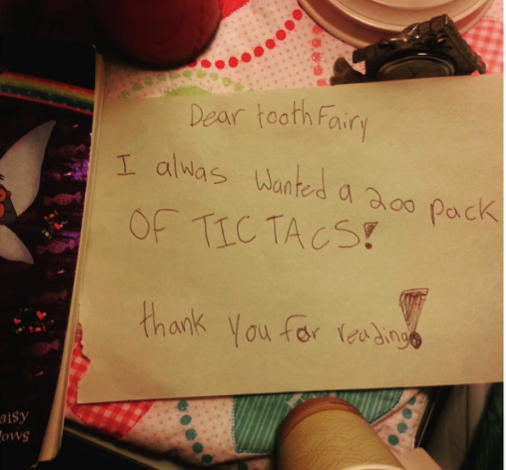 Dear toothFairy
I alwas wanted a 200 pack
OF TIC TACS!
thank you for reading!
aisy
lows